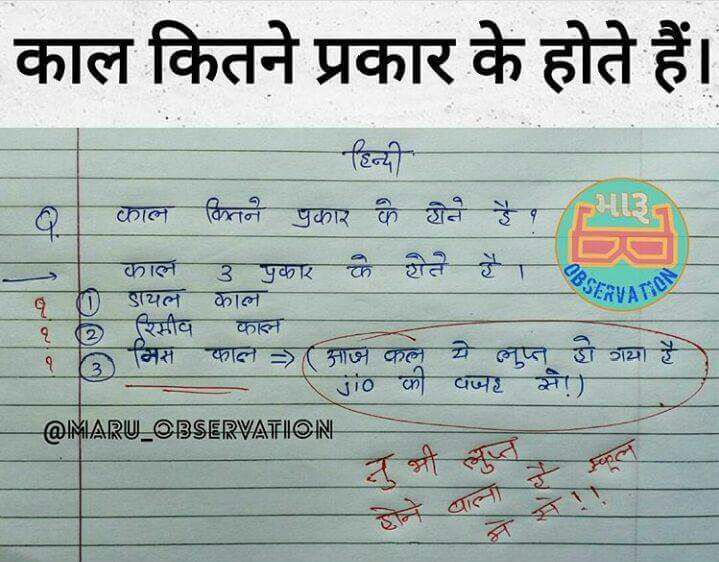 काल कितने प्रकार के होते हैं।
हिन्दी
Q. काल कितने प्रकार के होते है ?
મારૂ
OBSERVATION
→ काल 3 प्रकार के होते है ।
? ① डायल काल
? ② रिसीव काल
? ③ मिस काल ⇒ (आज कल ये लुप्त हो गया है
jio की वजह से!)
@MARU_OBSERVATION
तु भी लुप्त
होने वाला है स्कूल
मे से!!